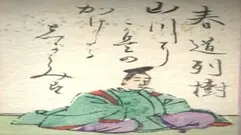 春道列樹
山川に
風の
かけたる
しからみは